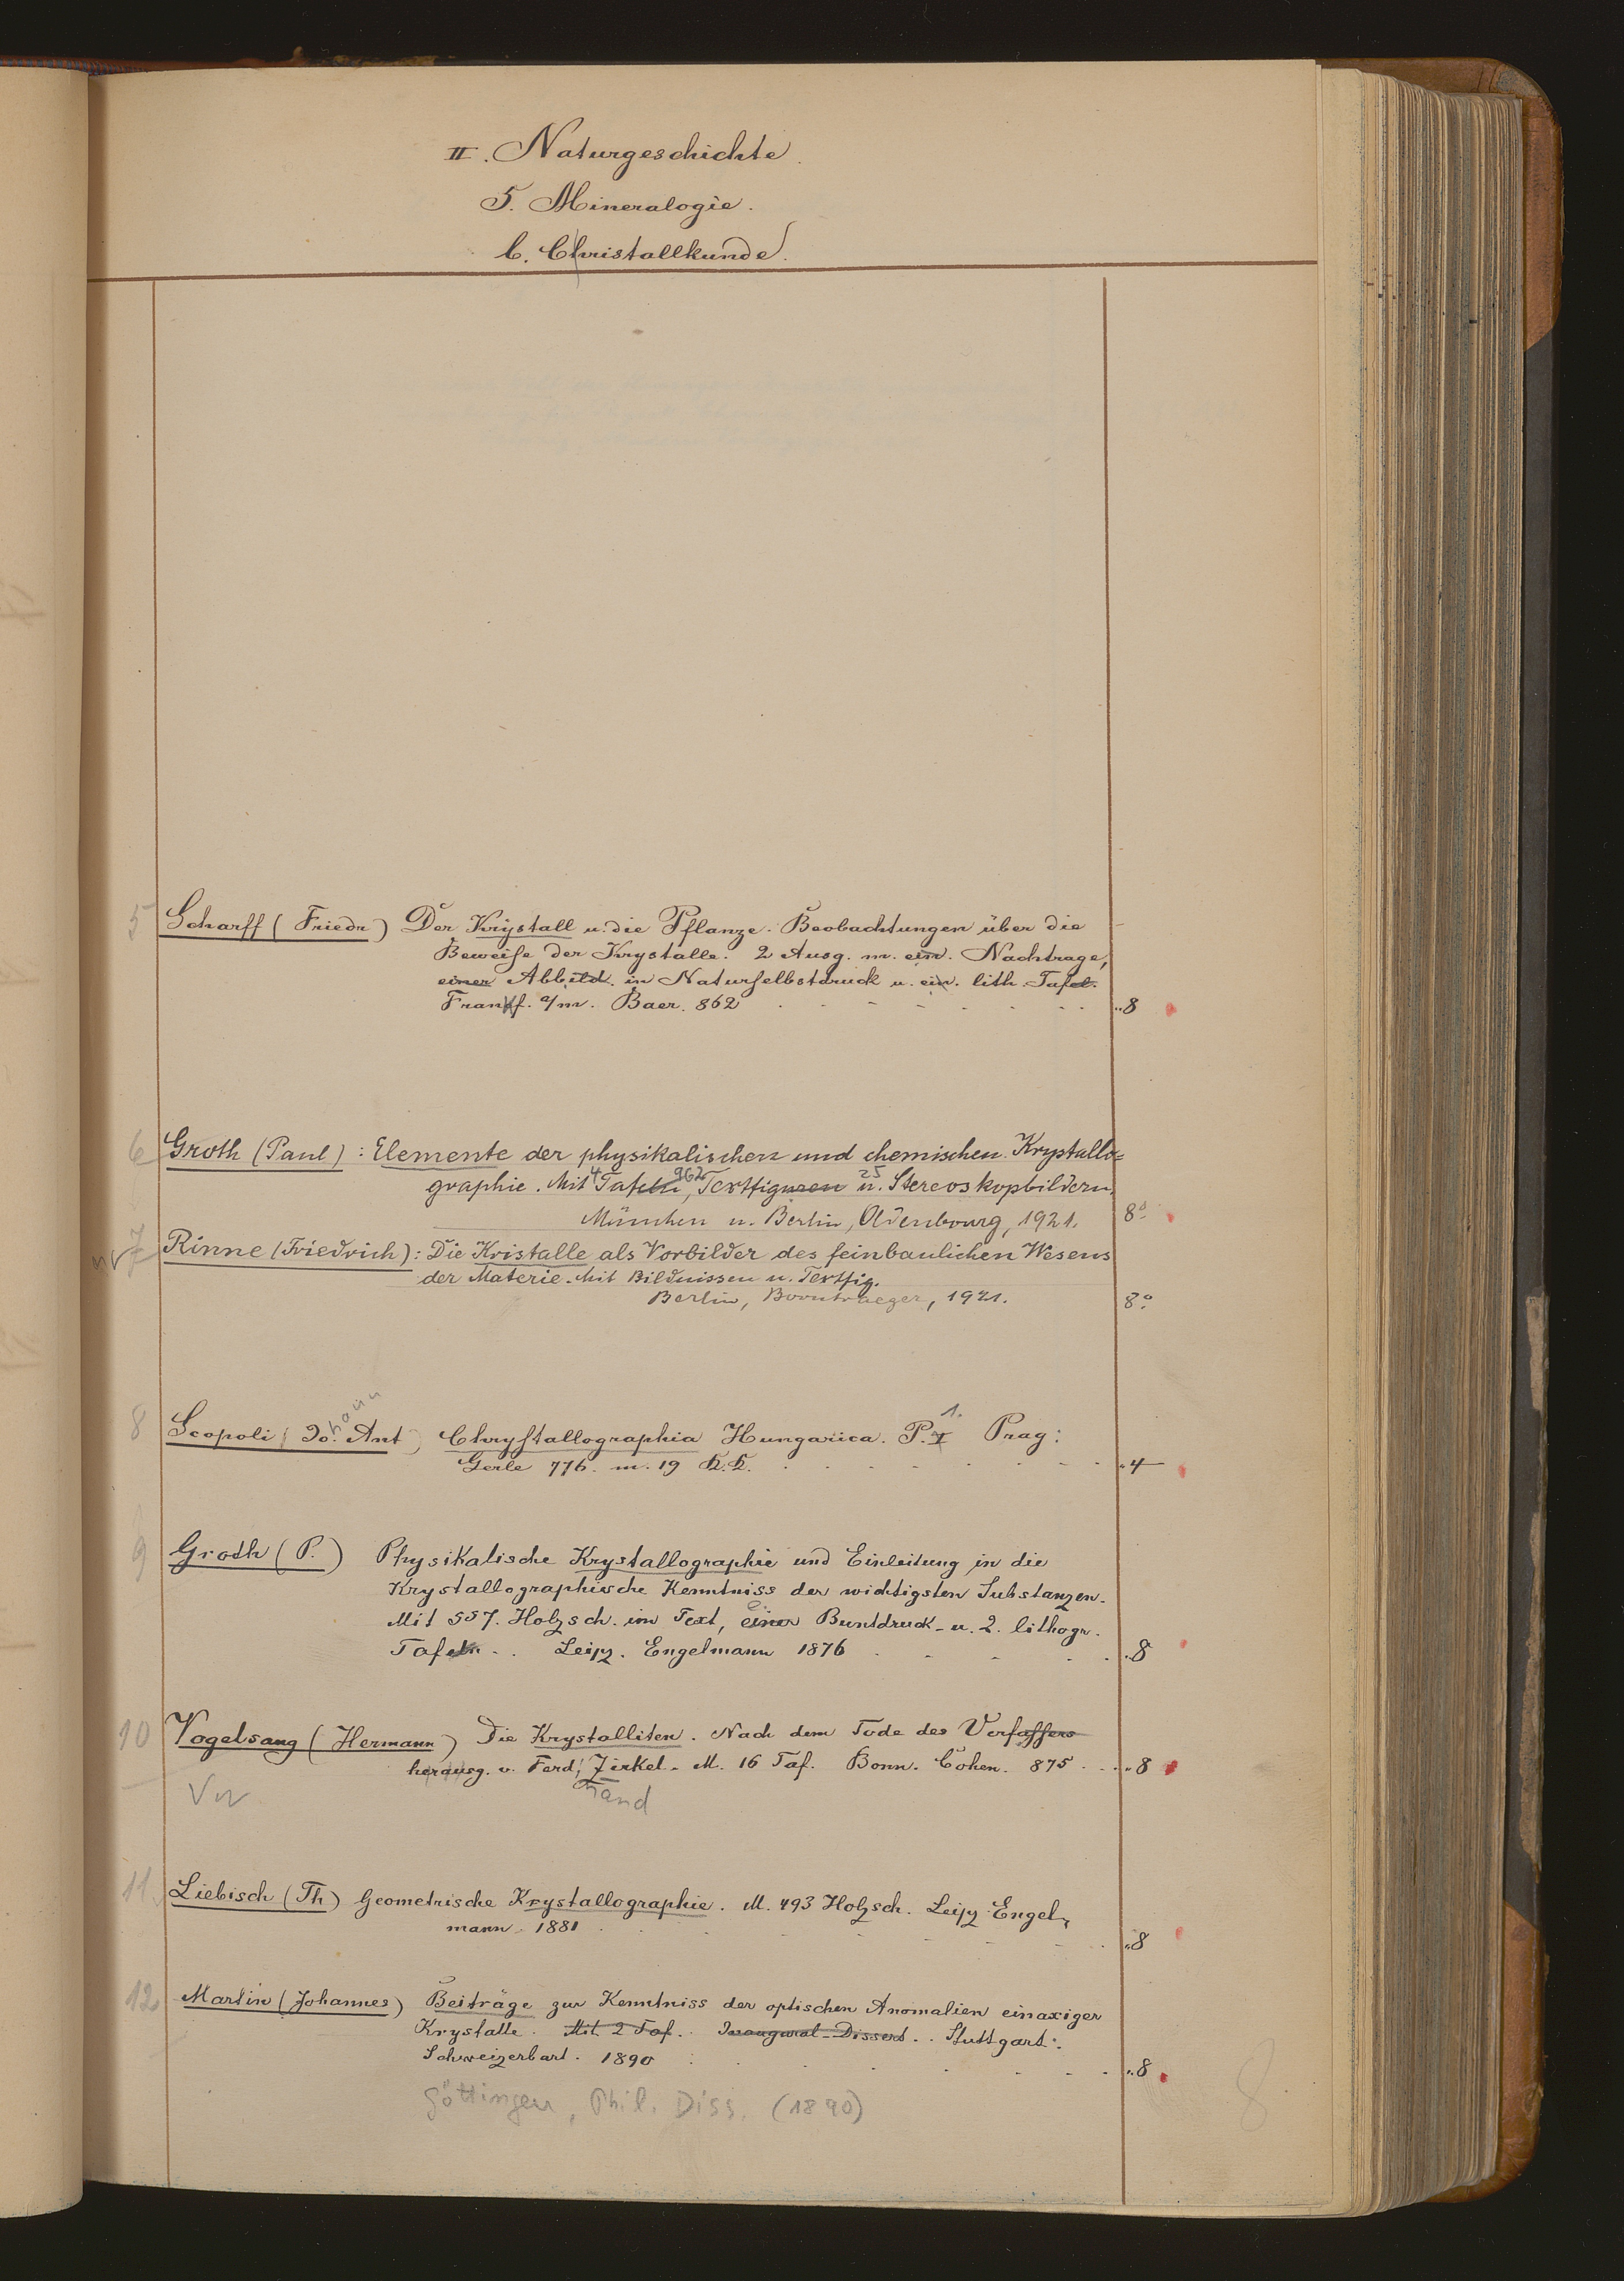 II. Naturgeschichte.
5. Mineralogie.
C. Christallkunde.
5 Scharff (Friedr) Der Krystall u. die Pflanze. Beobachtungen über die
Beweise der Krystalle. 2 Ausg. m. ein. Nachtrage,
einer Abbild. in Naturselbstdruck u. ein. lith. Tafel.
Frankf. a/m. Baer. 862 „8
6 Groth (Paul): Elemente der physikalischen und chemischen Krystallo=
graphie. Mit 4 Tafeln, 962 Textfiguren u. 25 Stereoskopbildern.
München u. Berlin, Oldenbourg, 1921. 8°
7 Rinne (Friedrich): Die Kristalle als Vorbilder des feinbaulichen Wesens
der Materie. Mit Bildnissen u. Textfig.
Berlin, Borntraeger, 1921. 8°
8 Scopoli (Johann Ant) Chrystallographia Hungarica. P. I 1. Prag:
Gerle 776. m. 19 K.K. „4
9 Groth (P.) Physikalische Krystallographie und Einleitung in die
Krystallographische Kenntniss der wichtigsten Substanzen.
Mit 557. Holzsch. im Text, einer Buntdruck- u. 2. lithogr.
Tafeln. Leipz. Engelmann 1876 „8
10 Vogelsang (Hermann) Die Krystalliten. Nach dem Tode des Verfassers
herausg. v. Ferd. Zirkel. M. 16 Taf. Bonn. Cohen. 875 „8
Vw
11 Liebisch (Th) Geometrische Krystallographie. M. 493 Holzsch. Leipz Engel=
mann. 1881 „8
12 Martin (Johannes) Beiträge zur Kenntniss der optischen Anomalien einaxiger
Krystalle. Mit 2 Taf. Inaugural-Dissert. Stuttgart:
Schweizerbart. 1890 „8
Göttingen, Phil. Diss. (1890)
8